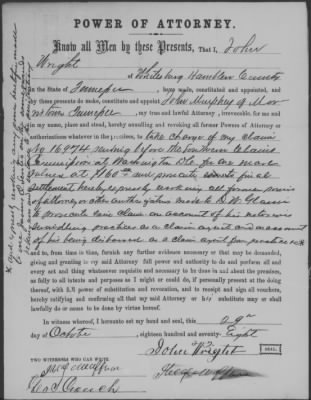 POWER OF ATTORNEY.
Know all Men by these Presents, That I, John
Wright
of Whitesburg Hamblen County
in the State of Tennessee, have made, constituted and appointed, and
by these presents do make, constitute and appoint John Murphey of Mor
ristown Tennessee, my true and lawful Attorney, irrevocable, for me and
in my name, place and stead, hereby annulling and revoking all former Powers of Attorney or
authorizations whatever in the premises, to take charge of my claim
No 16974 pending before the Southern Claims
Commission at Washington D.C. for one mare
valued at $160 00 and prosecute to final
settlement hereby expressly revoking all former powers
of attorney or other authorizations made to D. W. Glassie
to prosecute said claim on account of his notorious
swindling practices as a claim agent and on account
of his being disbarred as a claim agent
and to, from time to time, furnish any further evidence necessary or that may be demanded,
giving and granting to my said Attorney full power and authority to do and perform all and
every act and thing whatsoever requisite and necessary to be done in and about the premises,
as fully to all intents and purposes as I might or could do, if personally present at the doing
thereof, with full power of substitution and revocation, and to receipt and sign all vouchers,
hereby ratifying and confirming all that my said Attorney or his substitute may or shall
lawfully do or cause to be done by virtue hereof.
In witness whereof, I hereunto set my hand and seal, this 29
day of October, eighteen hundred and seventy- Eight
John Wright
SEAL.
TWO WITNESSES WHO CAN WRITE.